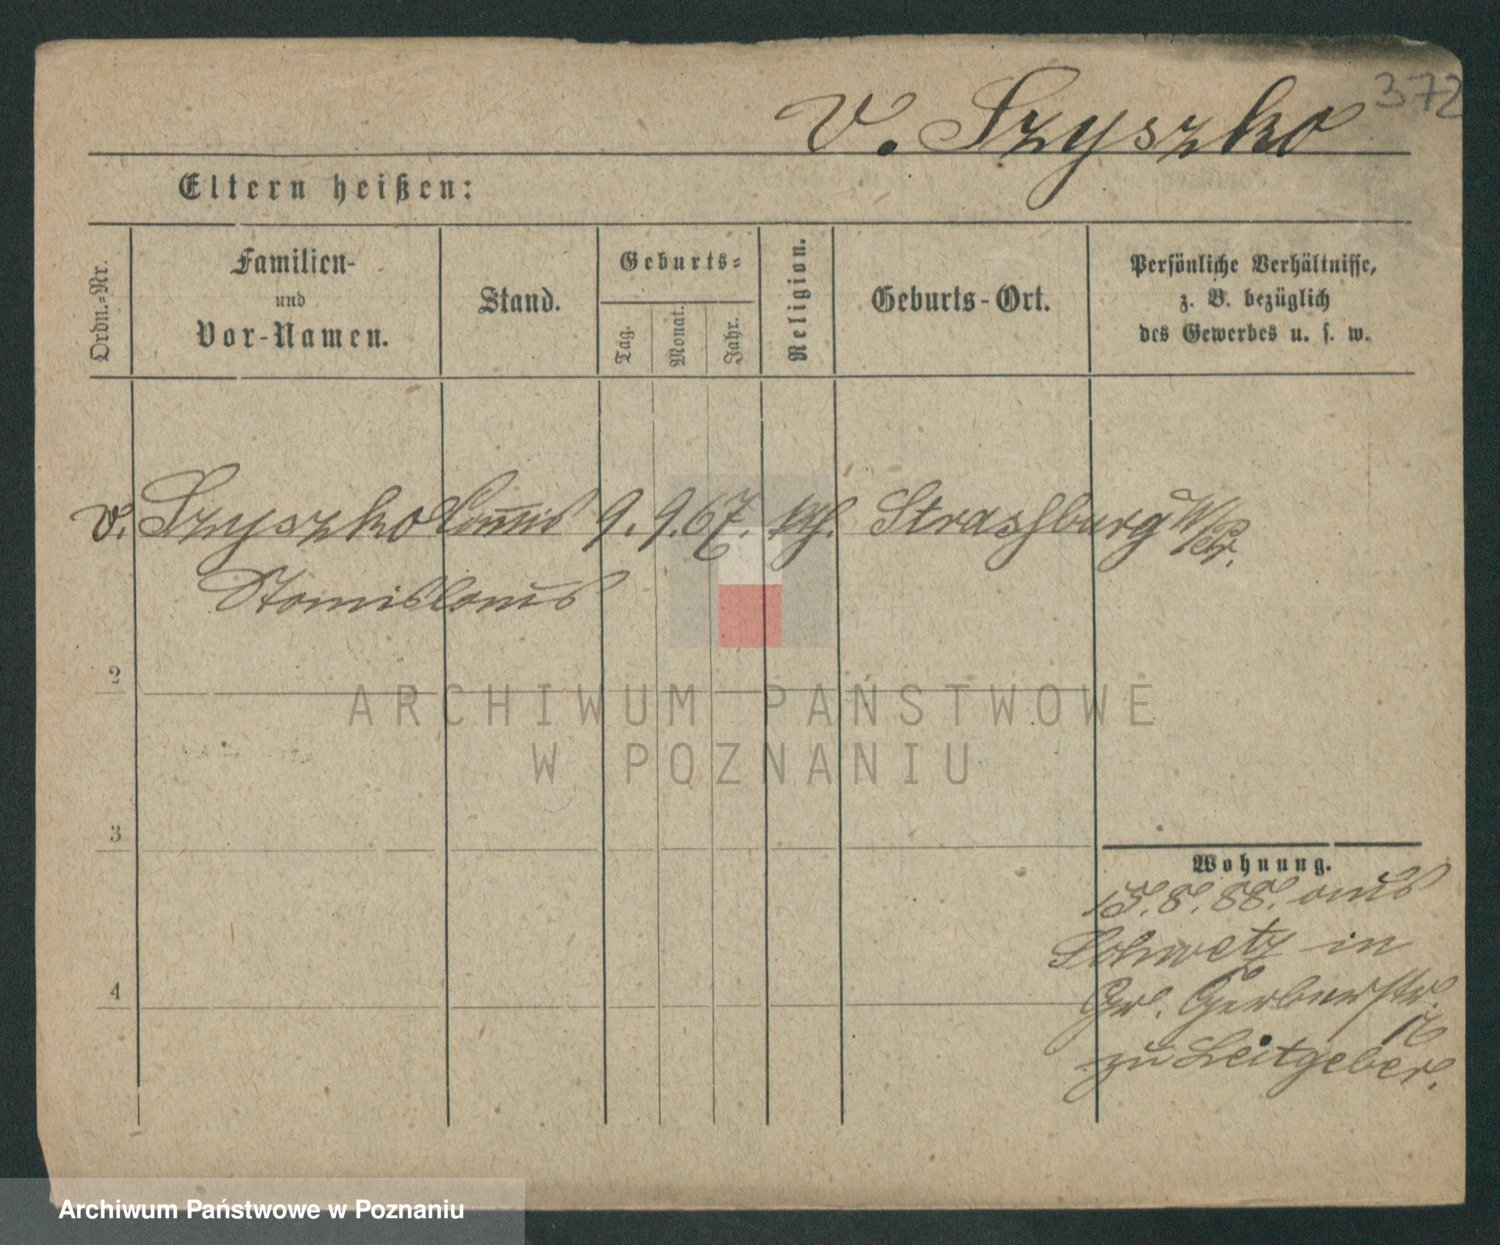 372
v. Szyszko
Eltern heißen:
Ordn.-Nr.
Familien-
und
Vor-Namen.
Stand.
Geburts-
Tag.
Monat.
Jahr.
Religion.
Geburts-Ort.
Persönliche Verhältnisse,
z. B. bezüglich
des Gewerbes u. s. w.
v. Szyszko Commis 9. 9. 67. kth. Strasburg W/Pr.
Stanislaus
2
3
4
Wohnung.
15.8.88. aus
Schwetz in
Gr. Gerberstr.
16
zu Leitgeber.
ARCHIWUM PAŃSTWOWE
W POZNANIU
Archiwum Państwowe w Poznaniu